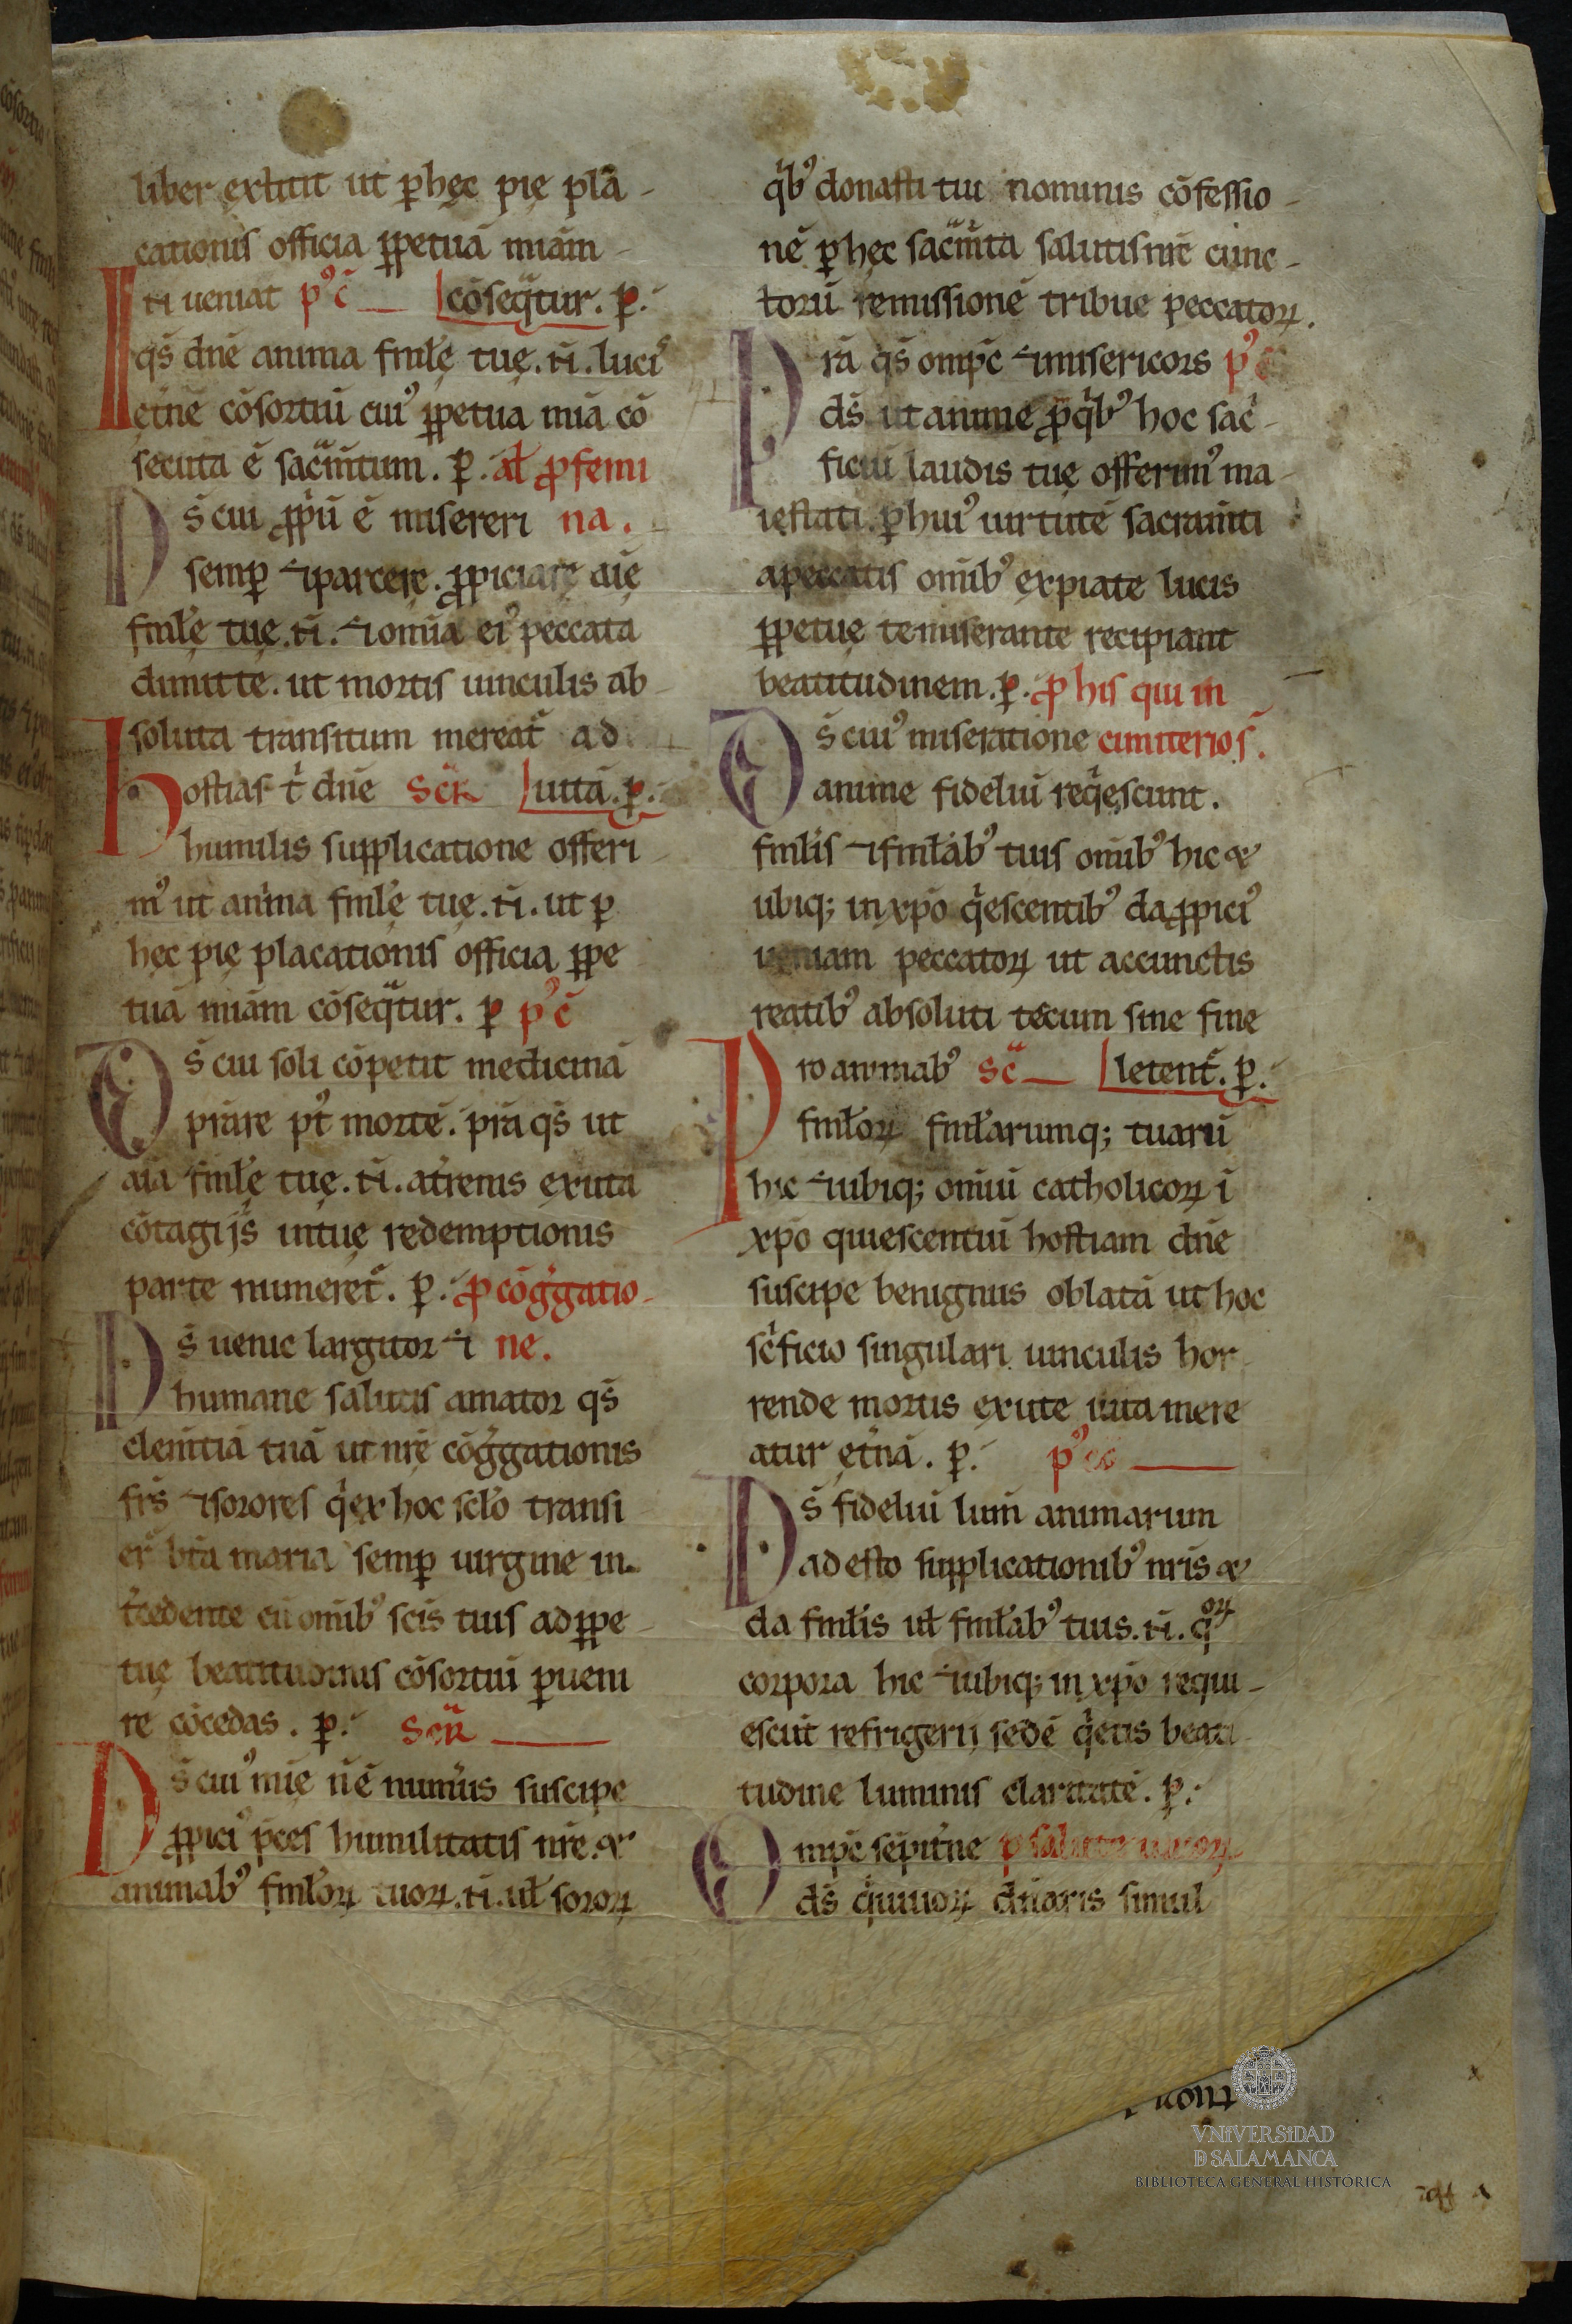 liber extitit ut ꝑ hęc pię pla᷑-
cationis officia ꝑpetuā miam̄
ti ueniat p᾽c̄ cōseq̄tur. ꝑ.
I qs̄ dn̄e anima fml̄ę tuę. n̄. luci᾽
ęt̄ne cōsortiū cui᾽ ꝑpetua mīa cō
secuta ē sacm̄tum. ꝑ. al̄ ꝓ femi
Ds̄ cui ꝓpū ē misereri na.
semꝑ ⁊ parcere. ꝓpiciare aīę
fml̄ę tuę. n̄. ⁊ om̄ia ei᾽ peccata
dimitte. ut mortis uinculis ab
soluta transitum mereat᷑ ad
Hostias t̄ dn̄e scr̄ uitā. ꝑ.
humilis supplicatione offeri
m᾽ ut anīma fml̄ę tuę. n̄. ut ꝑ
hęc pię placationis officia ꝑpe
tuā miam̄ cōseq̄tur. ꝑ p᾽c̄
Ds̄ cui soli cōpetit medicinā
p̄rare p᾽t mortē. p̄ra qs̄ ut
aīa fml̄ę tuę. n̄. at̄renis exuta
cōtagijs̄ in tuę redemptionis
parte numeret᷑. ꝑ. ꝓ cōḡgatio-
Ds̄ uenie largitor ⁊ ne.
humane salutis amator qs̄
clem̄tiā tuā ut nr̄ę cōḡgationis
fr̄s ⁊ sorores q̄ ex hoc scl̄o transi
er᷑ bt̄a maria semꝑ uirgine in
t̄cedente cū om̄ib᾽ sc̄is tuis ad ꝑpe
tuę beatitudinis cōsortiū ꝑueni
re cōcedas. ꝑ. scr̄
Ds̄ cui᾽ mīe n̄ ē num̄us suscipe
ꝓpici᾽ p̄ces humilitatis nr̄e. &
animab᾽ fml̄oꝝ tuoꝝ. n̄. ul̄ soroꝝ
q̄b᾽ donasti tui nominis cōfessio-
nē ꝑ hęc sacm̄ta salutis nr̄e cunc-
torū remissionē tribue peccatoꝝ.
Pr̄a qs̄ omp̄c ⁊ misericors p᾽
ds̄ ut anime ꝓ q̄b᾽ hoc sac̄
ficiū laudis tuę offerim᾽ ma
iestati. ꝑ hui᾽ uirtutē sacram̄ti
a peccatis om̄ib᾽ expiate lucis
ꝑpetuę te miserante recipiant
beatitudinem. ꝑ. ꝓ his qui in
Ds̄ cui᾽ miseratione cimiterio s̄.
anime fideliū req̄escunt.
fml̄is ⁊ fml̄ab᾽ tuis om̄ib᾽ hic &
ubiq; in xp̄o q̄escentib᾽ da ꝓpici᾽
ueniam peccatoꝝ ut a cunctis
reatib᾽ absoluti tecum sine fine
Pro animab᾽ sc̄ letent᷑. ꝑ.
fml̄oꝝ fml̄arumq; tuarū
hic ⁊ ubiq; om̄iū catholicoꝝ ī
xp̄o quiescentiū hostiam dn̄e
suscipe benignus oblatā ut hoc
sc̄ficio singulari uinculis hor
rende mortis exute uita mere
atur ęt̄nā. ꝑ. p᾽c̄
Ds̄ fideliū lum̄ animarum
adesto supplicationib᾽ nr̄is &
da fml̄is ul̄ fml̄ab᾽ tuis. n̄. qoꝝ
corpora hic ⁊ ubiq; in xp̄o requi-
escūt refrigerij sedē q̄etis beati
tudine luminis claritatē. ꝑ.
Omp̄c sēpit̄ne ꝓ salute uiuoꝝ
ds̄ q̄ uiuoꝝ dn̄aris simul
tuoꝝ
VNIVERSIDAD
D SALAMANCA
BIBLIOTECA GENERAL HISTÓRICA